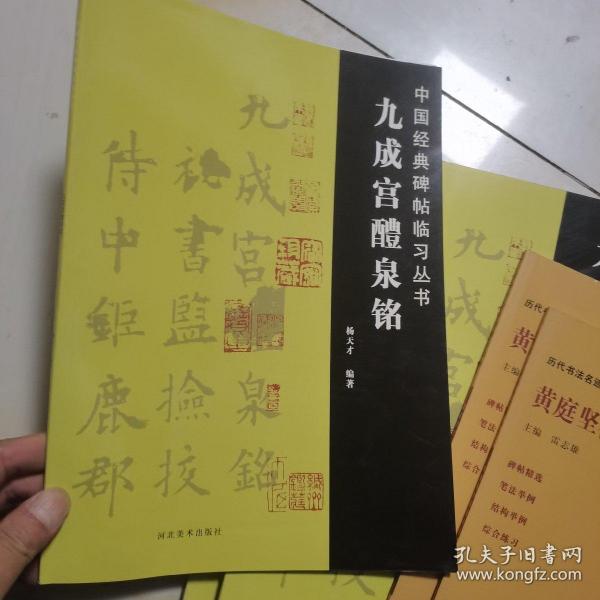 中国经典碑帖临习丛书
九成宫醴泉铭
杨天才 编著
九成宫
泉銘
秘書監撿挍
侍中鉅鹿郡
河北美术出版社
九成宫
历代书法名
黄
主编
碑帖
笔法
结构
综合
历代书法名
黄庭坚
主编 雷志雄
碑帖精选
笔法举例
结构举例
综合练习
孔夫子旧书网
www.kongfz.com